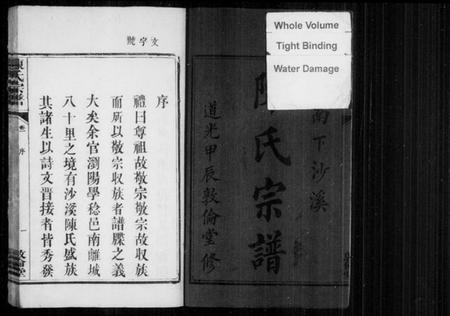 Whole Volume
Tight Binding
Water Damage
南下沙溪
陳氏宗譜
道光甲辰敦倫堂修
文字號
序
禮曰尊祖故敬宗敬宗故収族
而所以敬宗収族者譜牒之義
大矣余官瀏陽學稔邑南離城
八十里之境有沙溪陳氏盛族
其諸生以詩文晋接者皆秀發
陳氏宗譜
序
一
敦倫堂